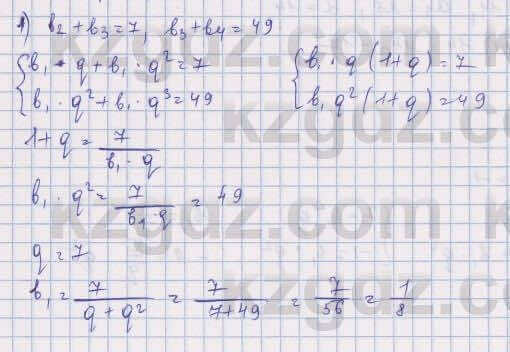 1) b₂ + b₃ = 7, b₃ + b₄ = 49
{ b₁ · q + b₁ · q² = 7
b₁ · q² + b₁ · q³ = 49
{ b₁ · q (1 + q) = 7
b₁ q² (1 + q) = 49
1 + q = 7 / (b₁ · q)
b₁ · q² = 7 / (b₁ · q) = 49
q = 7
b₁ = 7 / (q + q²) = 7 / (7 + 49) = 7/56 = 1/8
kzgdz.com